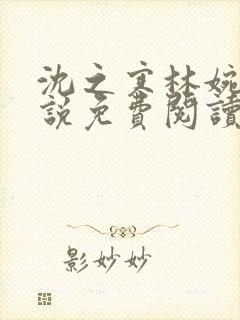 沈之寒林婉
說免費閱讀
影妙妙